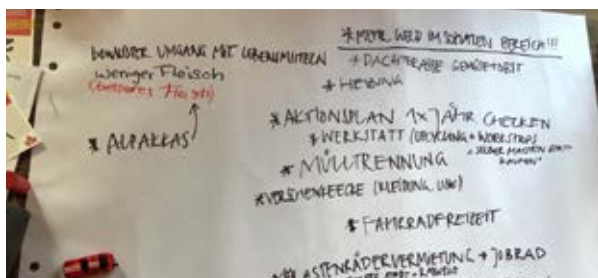 BEWUSSTER UMGANG MIT LEBENSMITTELN
weniger Fleisch
(besseres Fleisch)
* ALPAKKAS
* MEHR GELD IM SOZIALEN BEREICH!!!
* DACHTERRASSE GEMÜSE + OBST
* HEIZUNG
* AKTIONSPLAN 1x JÄHR CHECKEN
* WERKSTATT (UPCYCLING + WORKSHOPS
"SELBER MACHEN STATT
KAUFEN"
* MÜLLTRENNUNG
* VERSCHENKEECKE (KLEIDUNG, USW)
* FAHRRADFREIZEIT
* LASTENRÄDERVERMIETUNG + JOBRAD